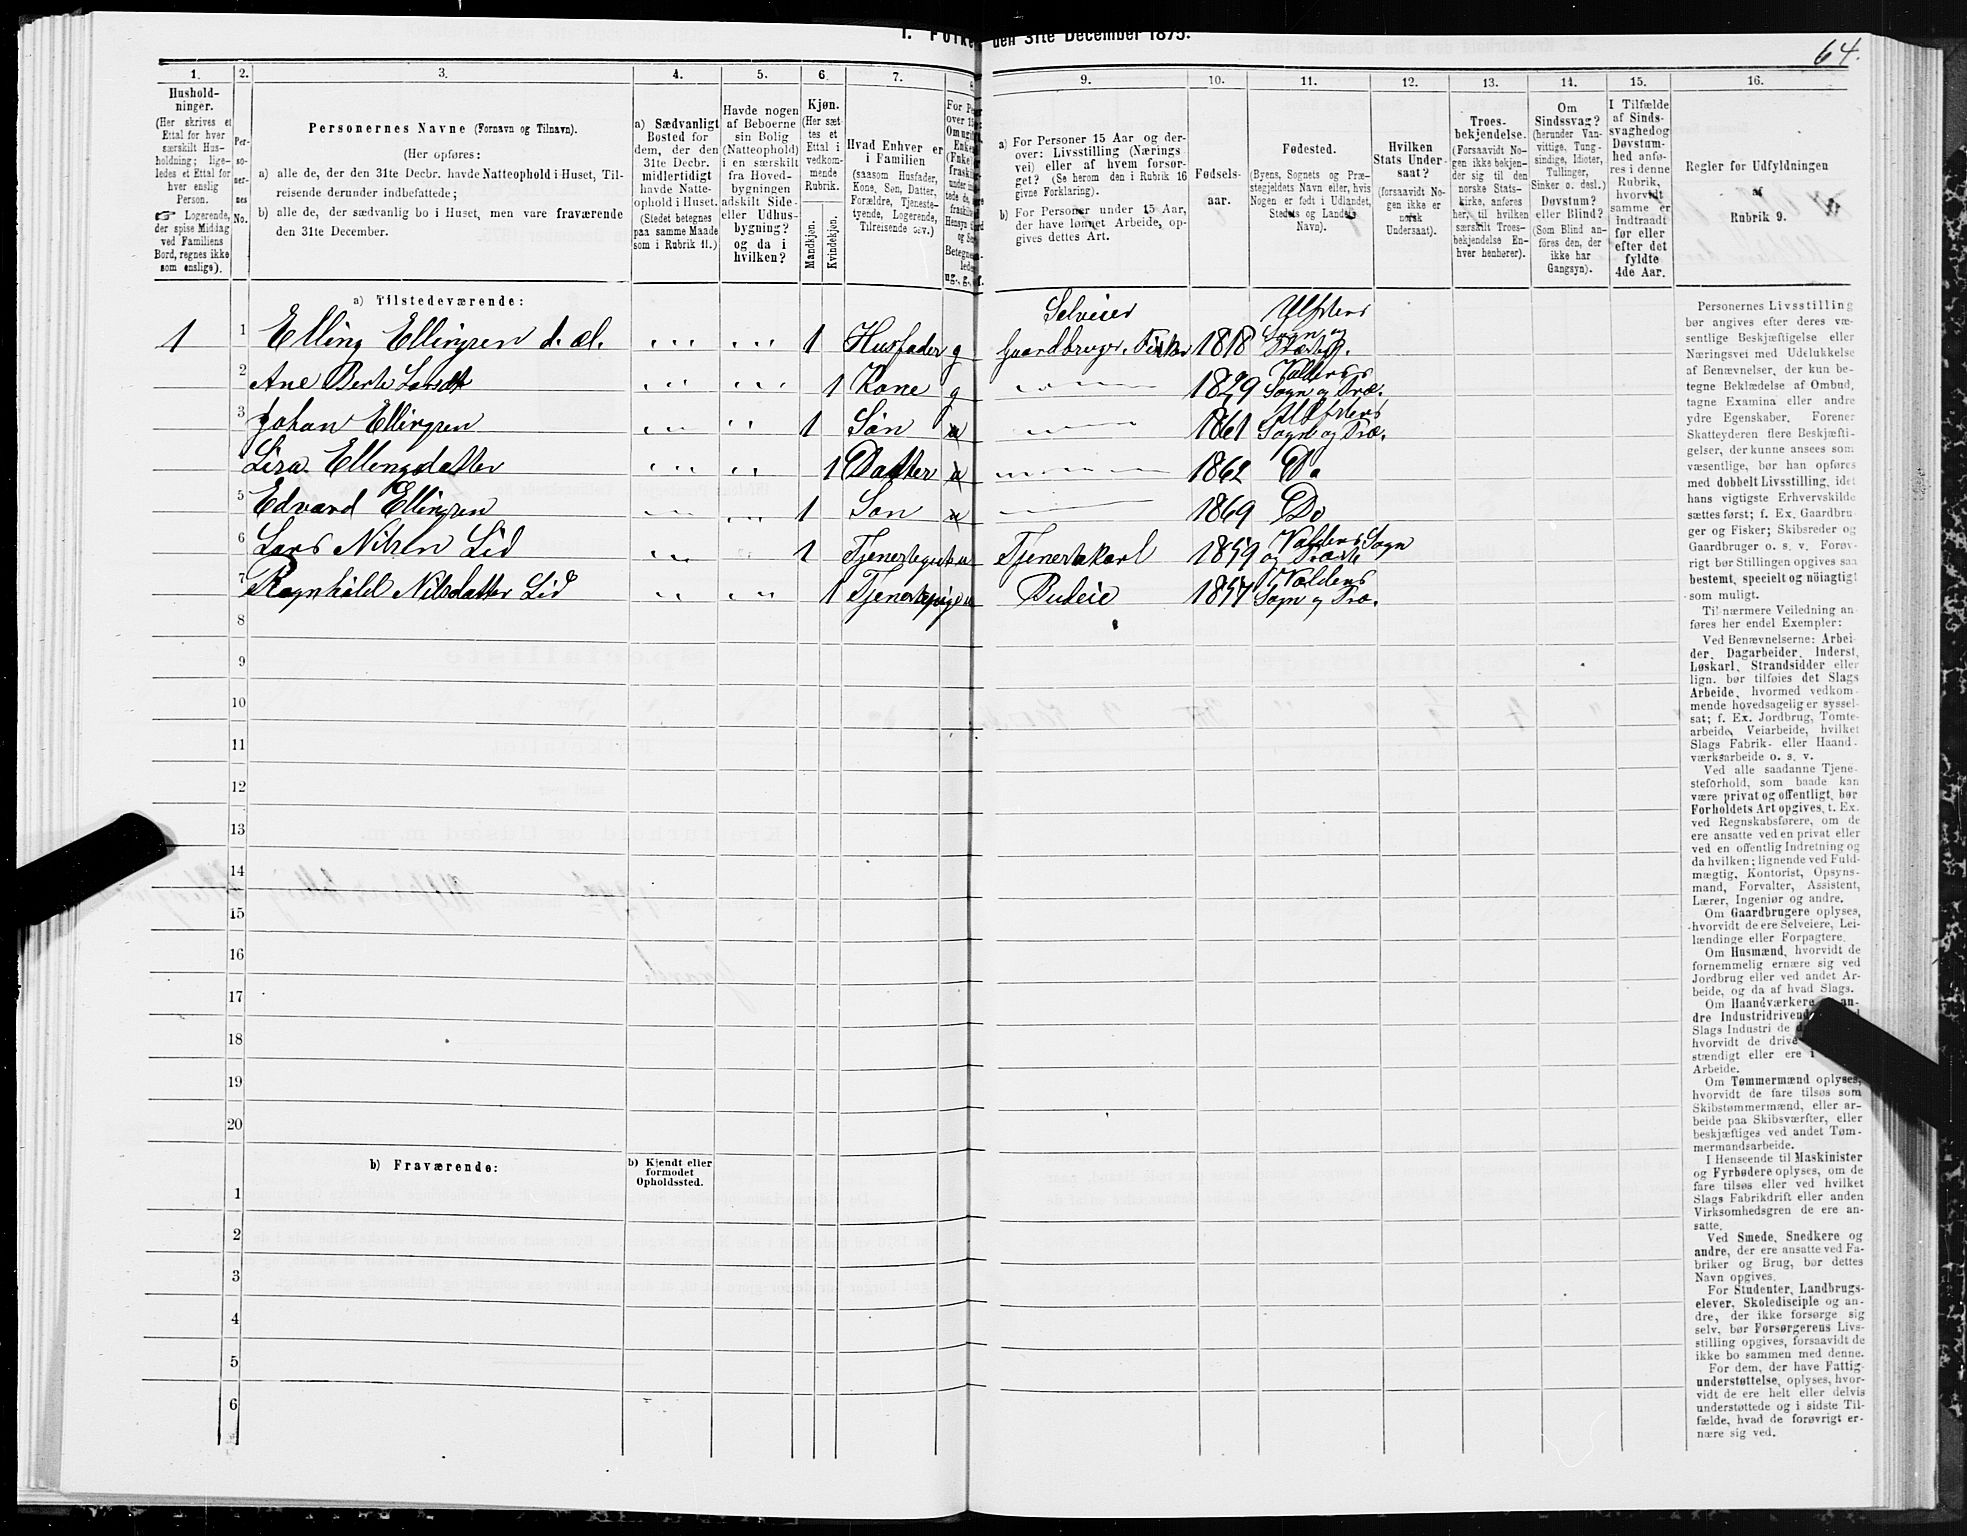 1. Folke
den 31te December 1875.
64.
1.
2.
3.
4.
5.
6.
7.
8.
9.
10.
11.
12.
13.
14.
15.
16.
Hushold-
ninger.
(Her skrives et
Ettal for hver
særskilt Hus-
holdning; lige-
ledes et Ettal for
hver enslig
Person.
☞ Logerende,
der spise Middag
ved Familiens
Bord, regnes ikke
som enslige).
Per-
so-
ner-
nes
No.
Personernes Navne (Fornavn og Tilnavn).
(Her opføres:
a) alle de, der den 31te Decbr. havde Natteophold i Huset, Til-
reisende derunder indbefattede;
b) alle de, der sædvanlig bo i Huset, men vare fraværende
den 31te December.
a) Sædvanligt
Bosted for
dem, der den
31te Decbr.
midlertidigt
havde Natte-
ophold i Huset.
(Stedet betegnes
paa samme Maade
som i Rubrik 11.)
Havde nogen
af Beboerne
sin Bolig
(Natteophold)
i en særskilt
fra Hoved-
bygningen
adskilt Side-
eller Udhus-
bygning?
og da i
hvilken?
Kjøn.
(Her sæt-
tes et
Ettal i
vedkom-
mende
Rubrik.
Mandkjøn.
Kvindekjøn.
Hvad Enhver er
i Familien
(saasom Husfader,
Kone, Søn, Datter,
Forældre, Tjeneste-
tyende, Logerende,
Tilreisende osv.)
a) For Personer 15 Aar og der-
over: Livsstilling (Nærings-
vei) eller af hvem forsør-
get? (Se herom den i Rubrik 16
givne Forklaring).
b) For Personer under 15 Aar,
der have lønnet Arbeide, op-
gives dettes Art.
Fødsels-
aar.
Fødested.
(Byens, Sognets og Præ-
stegjeldets Navn eller, hvis
Nogen er født i Udlandet,
Stedets og Landets
Navn).
Hvilken
Stats Under-
saat?
(forsaavidt No-
gen ikke er
norsk
Undersaat).
Troes-
bekjendelse.
(Forsaavidt No-
gen ikke bekjen-
der sig til den
norske Stats-
kirke, anføres
her, til hvilken
særskilt Troes-
bekjendelse En-
hver henhører).
Om
Sindssvag?
(herunder Van-
vittige, Tung-
sindige, Idioter,
Tullinger,
Sinker o. desl.)
Døvstum?
eller Blind?
(Som Blind an-
føres den, der
ikke har
Gangsyn).
I Tilfælde
af Sinds-
svaghed og
Døvstum-
hed anfø-
res i denne
Rubrik,
hvorvidt
samme er
indtraadt
før eller
efter det
fyldte
4de Aar.
Regler for Udfyldningen
af
Rubrik 9.
a) Tilstedeværende:
1 1 Elling Ellingsen d. æl. 1 Husfader g Selveier Gaardbruger. Fisker 1818 Ulfstens Sogn og Præsteg.
2 Ane Berte 1 Kone g 1829 Voldens Sogn og Præ.
3 Johan Ellingsen 1 Søn u 1861 Ulfstens Sogn og Præ.
Lisa Ellingsdatter 1 Datter u 1862 Do
5 Edvard Ellingsen 1 Søn u 1869 Do
6 Lars Nilsen Lid 1 u Tjenestekarl 1859 Voldens Sogn og Præste
7 Ragnhild Nilsdatter Lid 1 Tjenestepige u Budeie 1857 Voldens Sogn og Præ.
8
9
10
11
12
13
14
15
16
17
18
19
20
b) Fraværende:
b) Kjendt eller
formodet
Opholdssted.
1
2
3
4
5
6
Personernes Livsstilling
bør angives efter deres væ-
sentlige Beskjæftigelse eller
Næringsvei med Udelukkelse
af Benævnelser, der kun be-
tegne Beklædelse af Ombud,
tagne Examina eller andre
ydre Egenskaber. Forener
Skatteyderen flere Beskjæfti-
gelser, der kunne ansees som
væsentlige, bør han opføres
med dobbelt Livsstilling, idet
hans vigtigste Erhvervskilde
sættes først; f. Ex. Gaardbru-
ger og Fisker; Skibsreder og
Gaardbruger o. s. v. Forøv-
rigt bør Stillingen opgives saa
bestemt, specielt og nöiagtigt
som muligt.
Til nærmere Veiledning an-
føres her endel Exempler:
Ved Benævnelserne: Arbei-
der, Dagarbeider, Inderst,
Løskarl, Strandsidder eller
lign. bør tilføies det Slags
Arbeide, hvormed vedkom-
mende hovedsagelig er syssel-
sat; f. Ex. Jordbrug, Tomte-
arbeide, Veiarbeide, hvilket
Slags Fabrik- eller Haand-
værksarbeide o. s. v.
Ved alle saadanne Tjene-
steforhold, som baade kan
være privat og offentligt, bør
Forholdets Art opgives, t. Ex.
ved Regnskabsførere, om de
ere ansatte ved en privat eller
ved en offentlig Indretning og
da hvilken; lignende ved Fuld-
mægtig, Kontorist, Opsyns-
mand, Forvalter, Assistent,
Lærer, Ingeniør og andre.
Om Gaardbrugere oplyses,
hvorvidt de ere Selveiere, Lei-
lændinge eller Forpagtere.
Om Husmænd, hvorvidt de
fornemmelig ernære sig ved
Jordbrug eller ved andet Ar-
beide, og da af hvad Slags.
Om Haandværkere an-
dre Industridrivend
Slags Industri de d
hvorvidt de drive
stændigt eller ere i
Arbeide.
Om Tømmermænd oplyses,
hvorvidt de fare tilsøs som
Skibstømmermænd, eller ar-
beide paa Skibsværfter, eller
beskjæftiges ved andet Tøm-
mermandsarbeide.
I Henseende til Maskinister
og Fyrbødere oplyses, om de
fare tilsøs eller ved hvilket
Slags Fabrikdrift eller anden
Virksomhedsgren de ere an-
satte.
Ved Smede, Snedkere og
andre, der ere ansatte ved Fa-
briker og Brug, bør dettes
Navn opgives.
For Studenter, Landbrugs-
elever, Skoledisciple og an-
dre, der ikke forsørge sig
selv, bør Forsørgerens Livs-
stilling opgives, forsaavidt de
ikke bo sammen med denne.
For dem, der have Fattig-
understøttelse, oplyses, hvor-
vidt de ere helt eller delvis
understøttede og i sidste Til-
fælde, hvad de forøvrigt er-
nære sig ved.